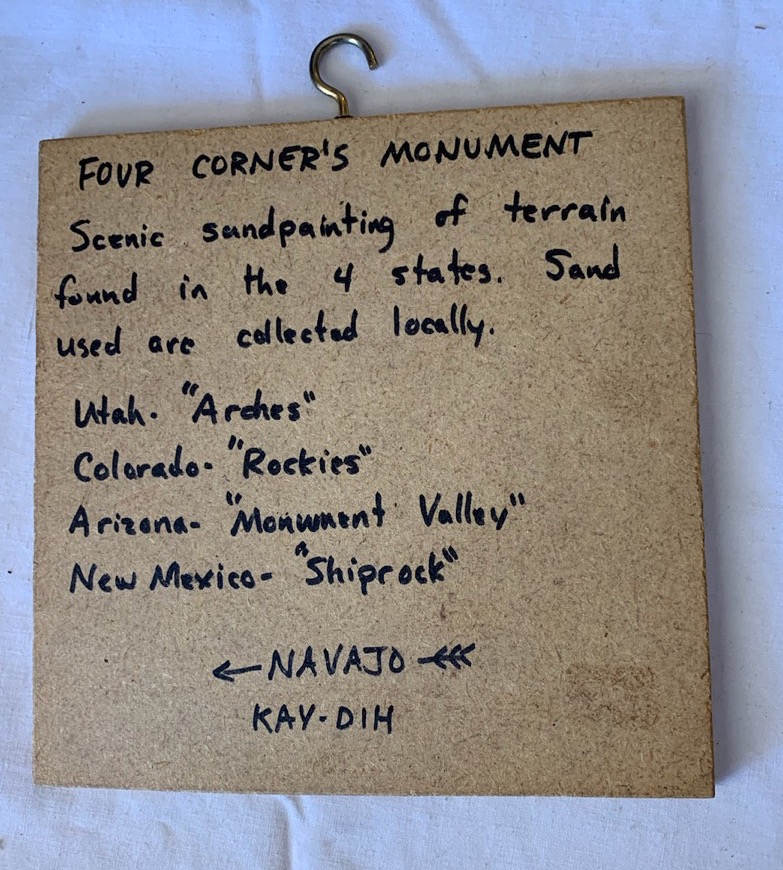 FOUR CORNER'S MONUMENT
Scenic sandpainting of terrain
found in the 4 states. Sand
used are collected locally.
Utah- "Arches"
Colorado- "Rockies"
Arizona- "Monument Valley"
New Mexico- "Shiprock"
NAVAJO
KAY-DIH